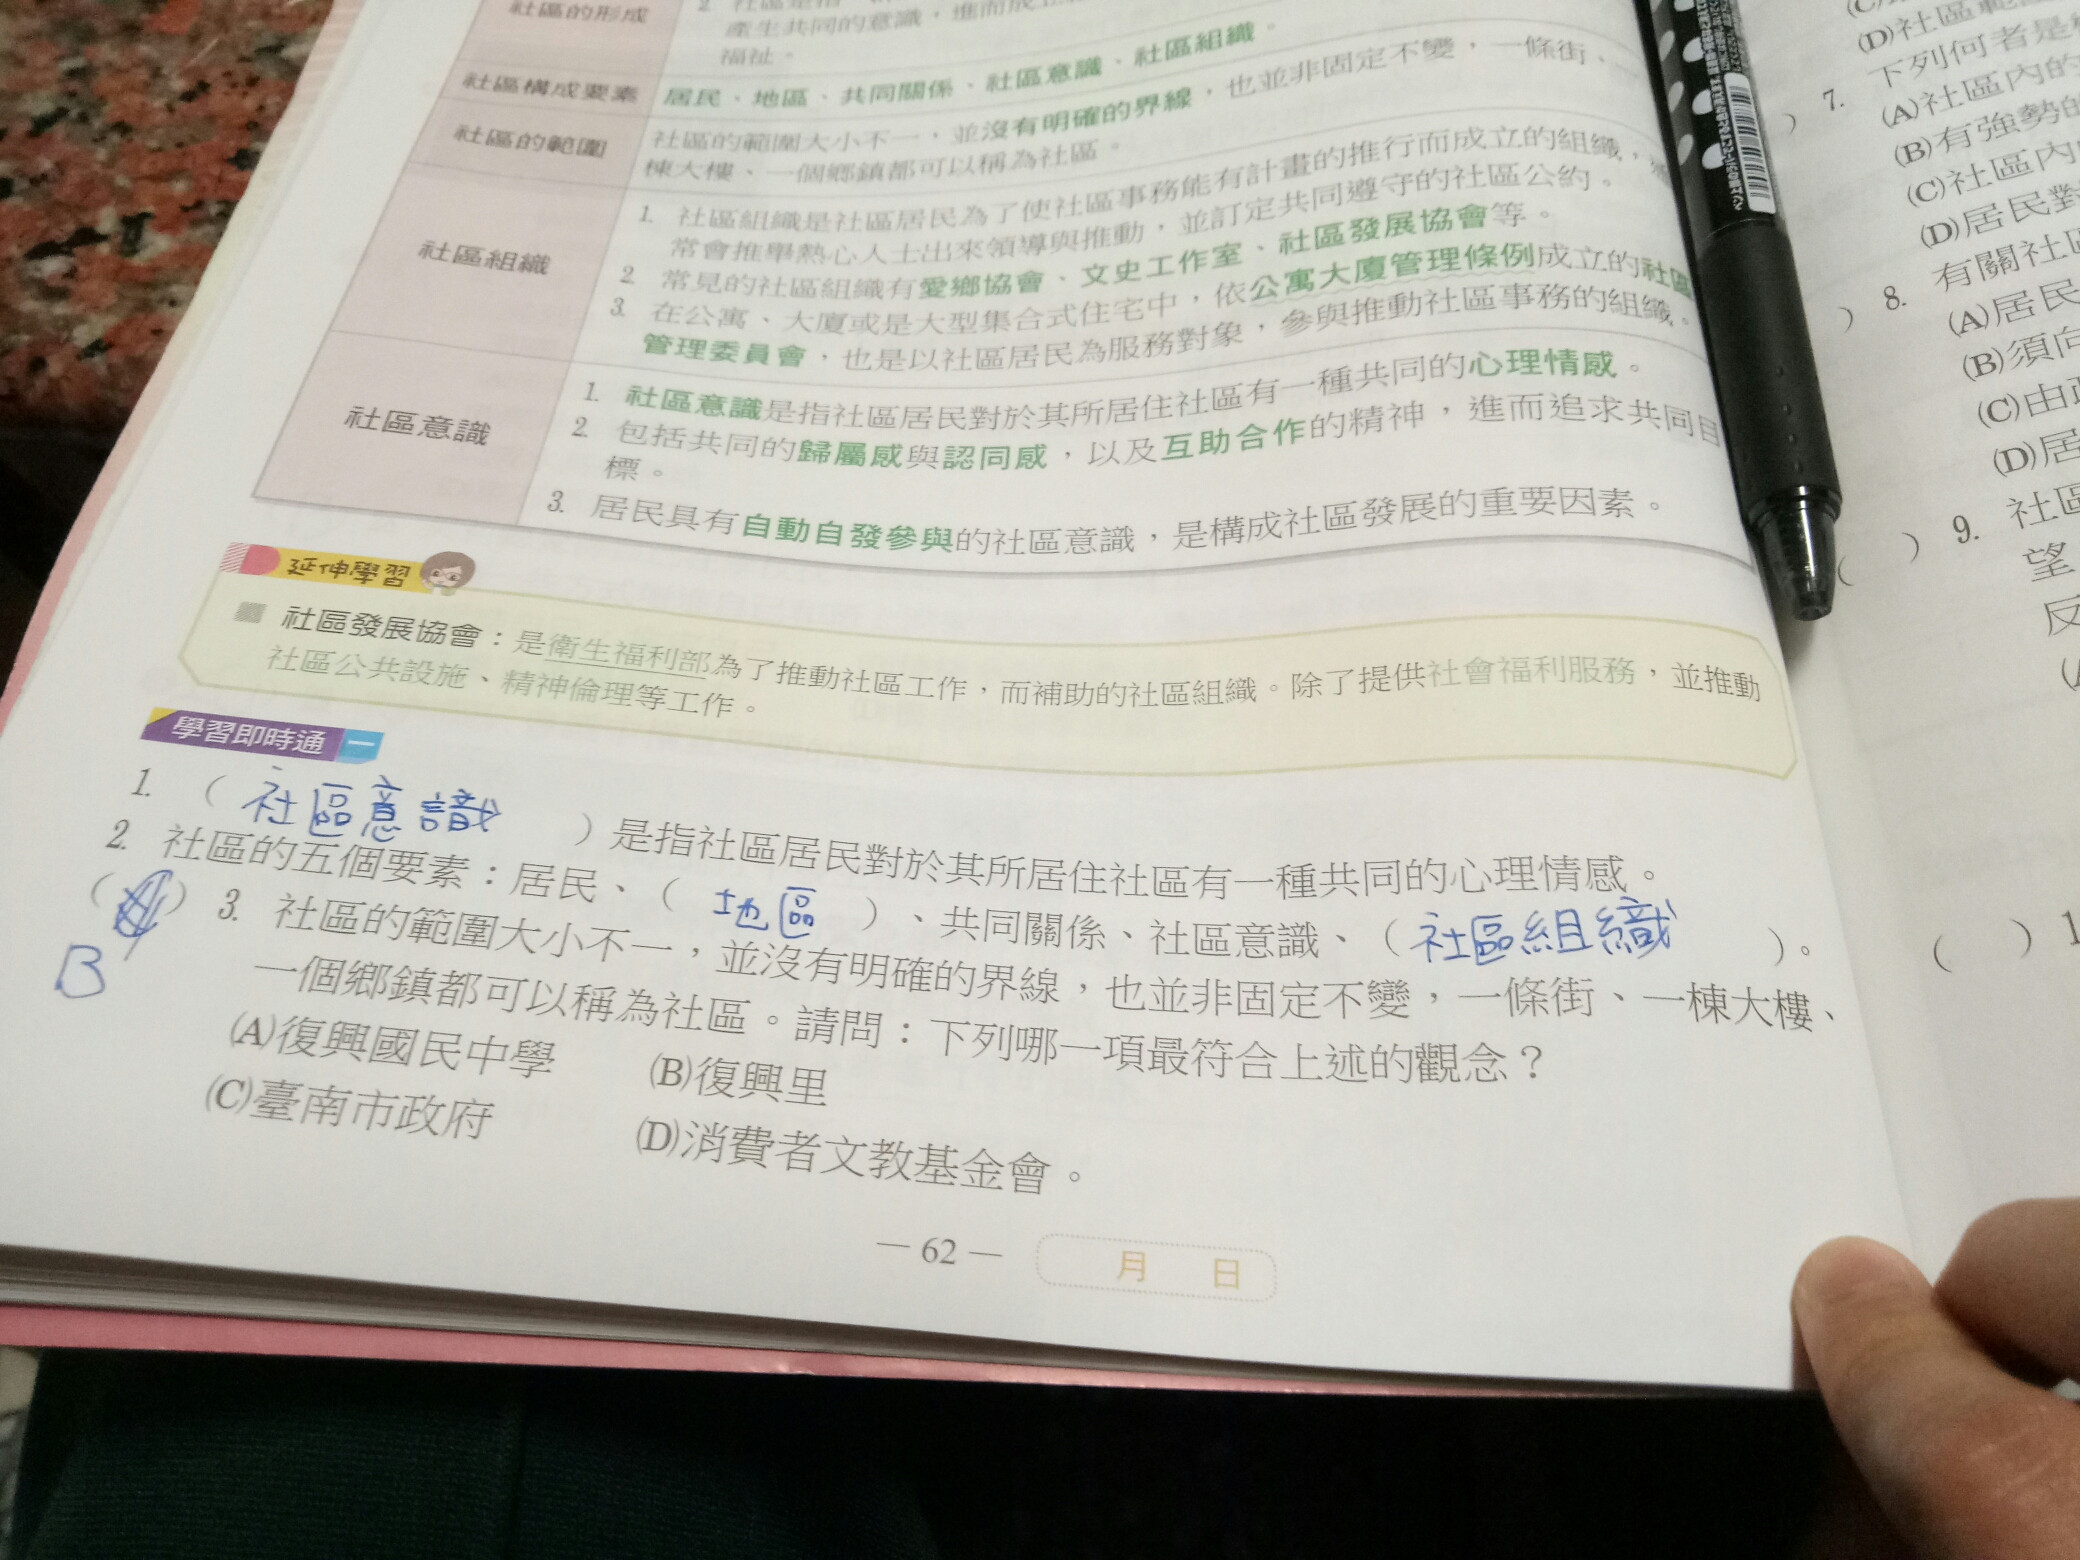 社區的形成
產生共同的意識，進而成
福祉。
社區構成要素 居民、地區、共同關係、社區意識、社區組織。
社區的範圍 社區的範圍大小不一，並沒有明確的界線，也並非固定不變，一條街、一
棟大樓、一個鄉鎮都可以稱為社區。
社區組織
1. 社區組織是社區居民為了使社區事務能有計畫的推行而成立的組織，
常會推舉熱心人士出來領導與推動，並訂定共同遵守的社區公約。
2. 常見的社區組織有愛鄉協會、文史工作室、社區發展協會等。
3. 在公寓、大廈或是大型集合式住宅中，依公寓大廈管理條例成立的社區
管理委員會，也是以社區居民為服務對象，參與推動社區事務的組織。
社區意識
1. 社區意識是指社區居民對於其所居住社區有一種共同的心理情感。
2. 包括共同的歸屬感與認同感，以及互助合作的精神，進而追求共同目
標。
3. 居民具有自動自發參與的社區意識，是構成社區發展的重要因素。
延伸學習
社區發展協會：是衛生福利部為了推動社區工作，而補助的社區組織。除了提供社會福利服務，並推動
社區公共設施、精神倫理等工作。
學習即時通 一
1. （社區意識）是指社區居民對於其所居住社區有一種共同的心理情感。
2. 社區的五個要素：居民、（地區）、共同關係、社區意識、（社區組織）。
（ ）3. 社區的範圍大小不一，並沒有明確的界線，也並非固定不變，一條街、一棟大樓、
B
一個鄉鎮都可以稱為社區。請問：下列哪一項最符合上述的觀念？
(A)復興國民中學 (B)復興里
(C)臺南市政府 (D)消費者文教基金會。
— 62 —
月 日
(D)社區範
） 7. 下列何者是
(A)社區內的
(B)有強勢的
(C)社區內
(D)居民對
） 8. 有關社區
(A)居民
(B)須向
(C)由政
(D)居
（ ） 9. 社區
望
反
（ ） 1